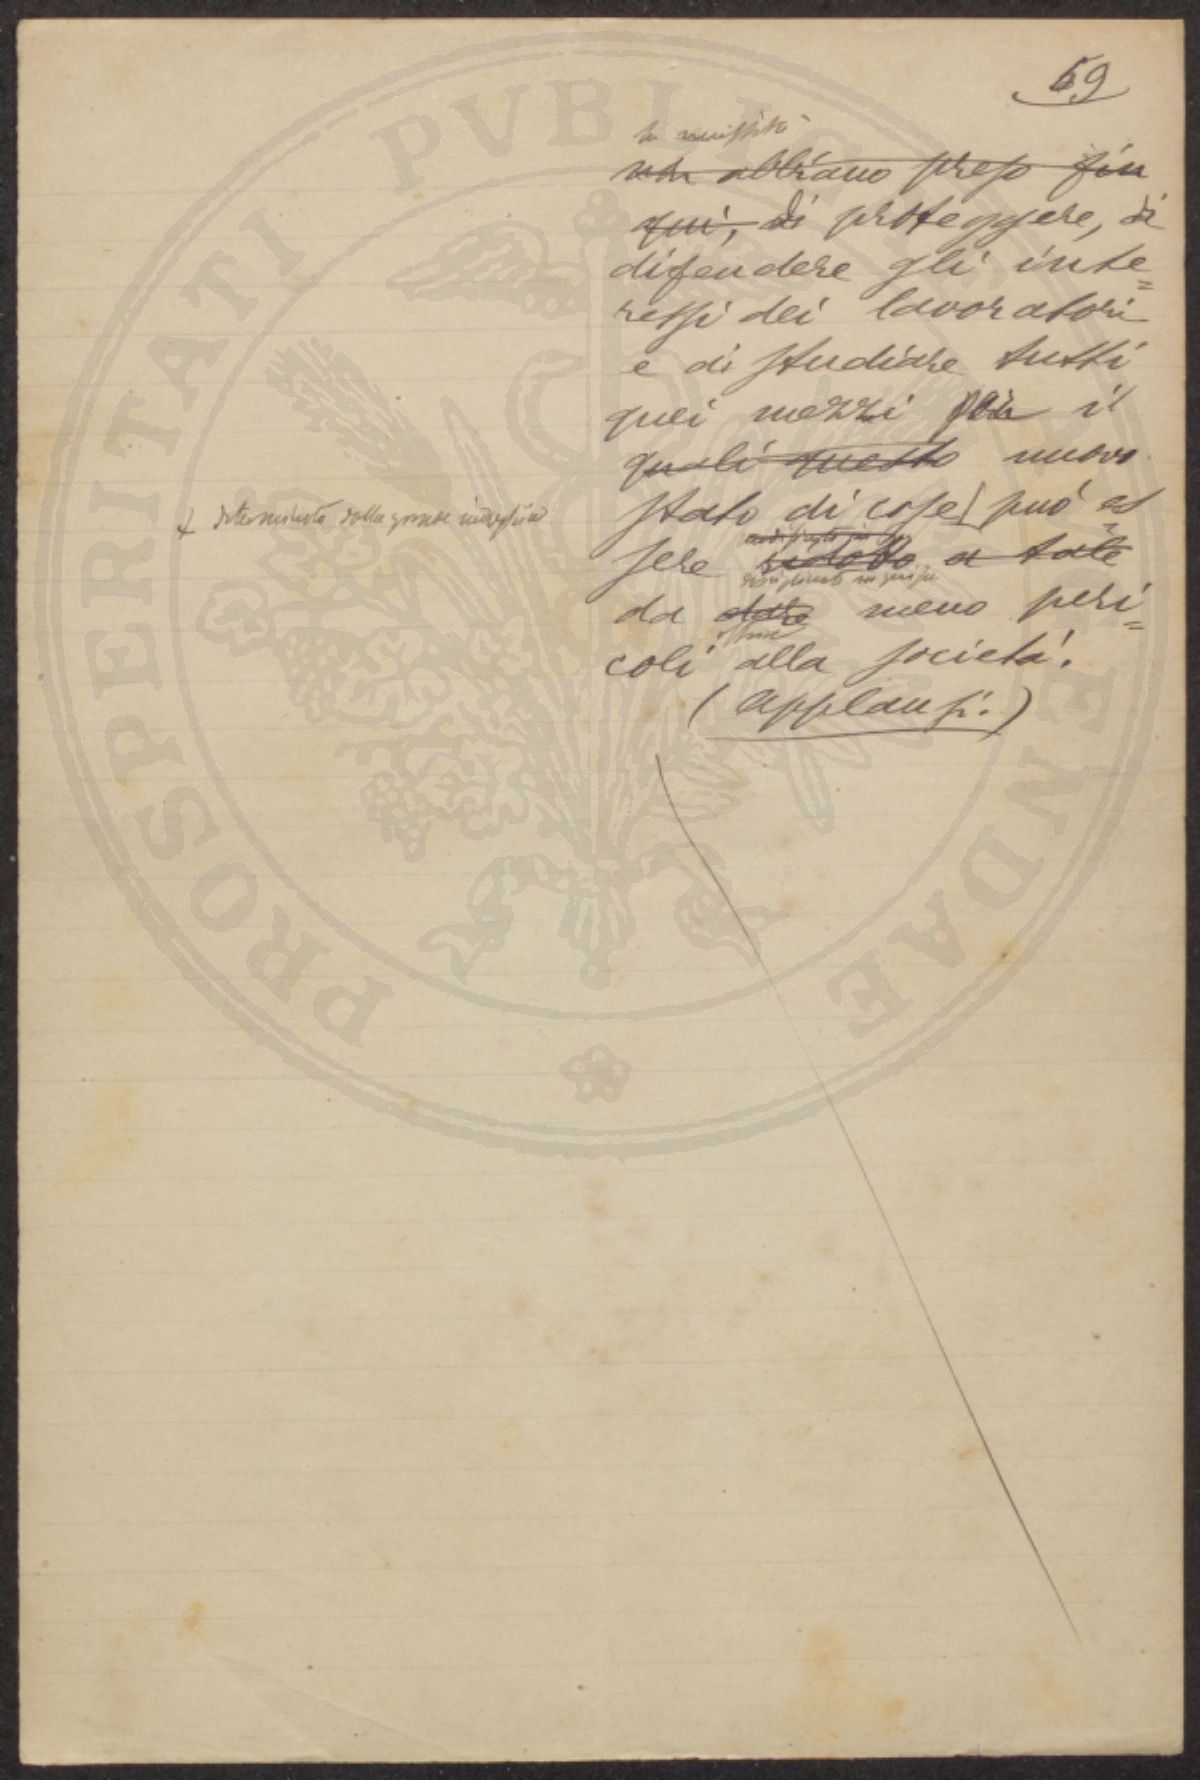 59
la necessità
non abbiamo preso fin
qui, di proteggere, di
difendere gli inte=
ressi dei lavoratori
e di studiare tutti
quei mezzi per il
quali questo nuovo
stato di cose può es
sere ridotto a tale
disciplinato in guisa
da dare meno peri=
coli alla società.
(applausi.)
determinato dalla grande industria
PROSPERITATI PVBLICAE AVGENDAE